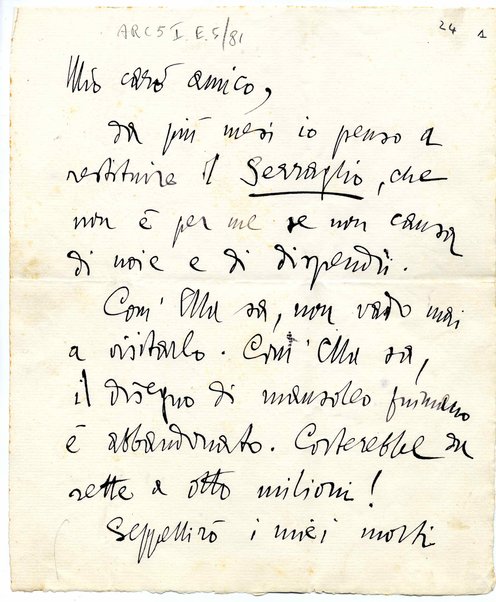 ARC5 I. E. 5/81
24 1
Mio caro amico,
da più mesi io penso a
restituire il Serraglio, che
non è per me se non causa
di noie e di dispendii.
Com' Ella sa, non vado mai
a visitarlo. Com' Ella sa,
il disegno di mausoleo fiumano
è abbandonato. Costerebbe da
sette a otto milioni!
Seppellirò i miei morti